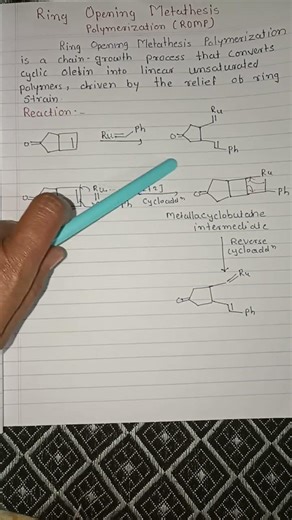 Ring Opening Metathesis
Polymerization (ROMP)
Ring Opening Metathesis Polymerization
is a chain-growth process that converts
cyclic olefin into linear unsaturated
polymers, driven by the relief of ring
strain.
Reaction:-
O
Ru
Ph
O
Ru
Ph
Ru
Ph
Cycloaddⁿ
O
Ru
Ph
Metallacyclobutane
intermediate
Reverse
cycloaddⁿ
O
Ru
Ph